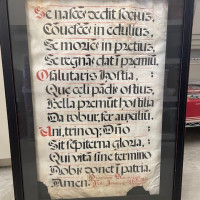 Se nascés dedit sociũs,
Convescés in edulius,
Se moriés in pretius,
Se regnãs dat ĩ premiũ.
O salutaris hostia,
Que celi pãdis ostius,
Bella premũt hostilia
Da robur, fer auxiliũ.
Uni, trinoq; Dño
Sit sẽpiterna gloria,
Qui vitã sine termino
Nobis donet ĩ patria.
Amen.